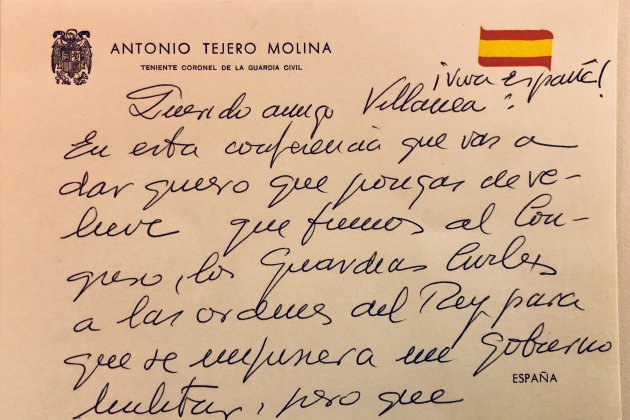 ANTONIO TEJERO MOLINA
TENIENTE CORONEL DE LA GUARDIA CIVIL
¡Viva España!
Querido amigo Villanea:
En esta conferencia que vas a
dar quero que pongas de re-
lieve que fuimos al Con-
greso, los Guardias Civiles
a las ordenes del Rey para
que se impusiera un Gobierno
ESPAÑA
militar, pero que